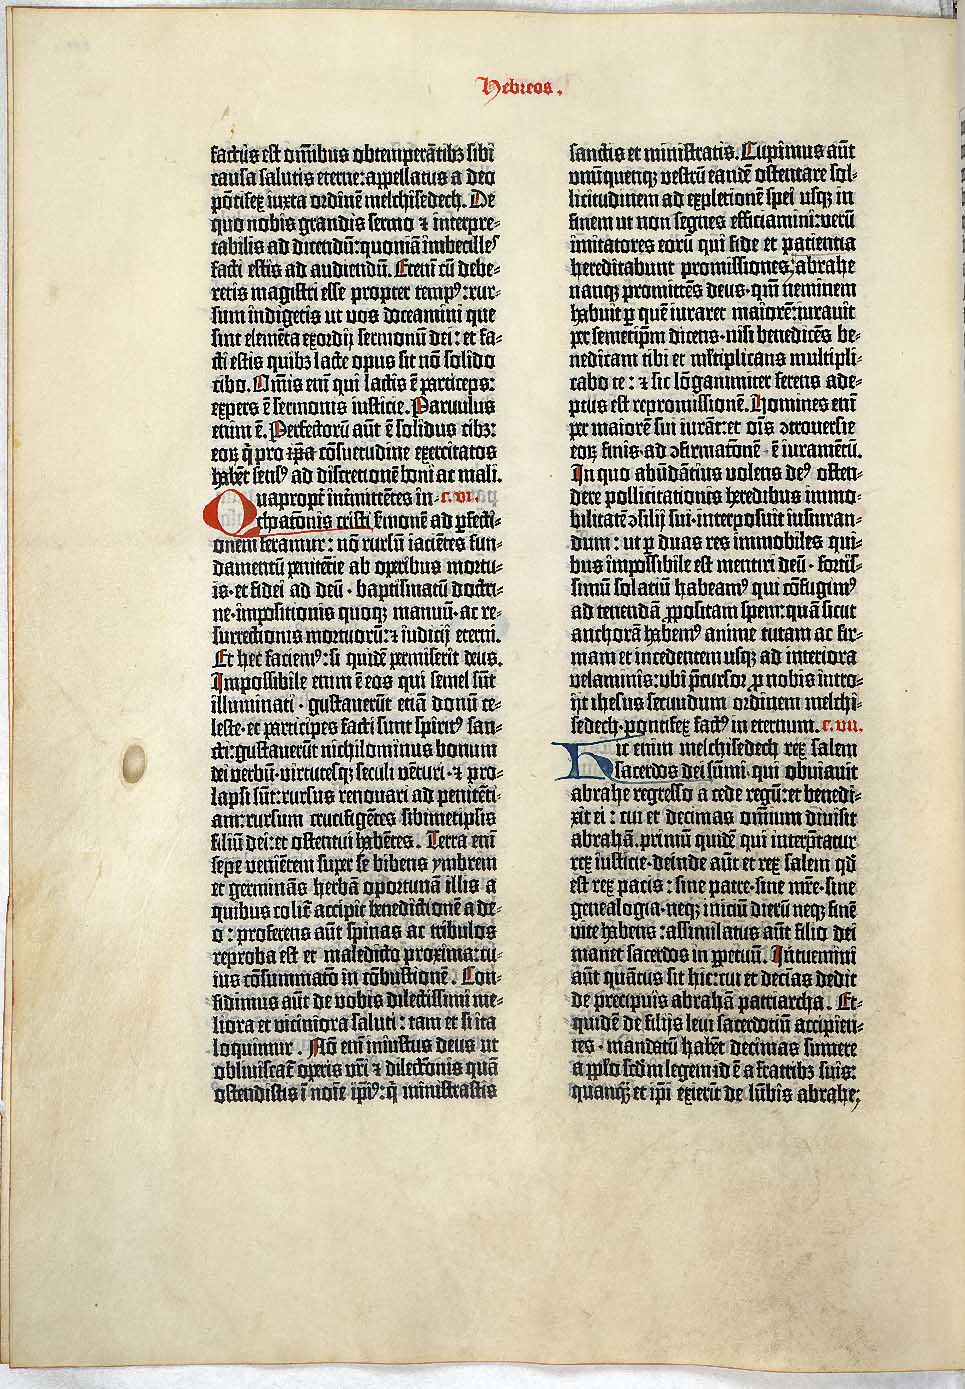 Hebreos.
factus est om̄ibus obtemperātibꝫ sibi
causa salutis eterne: appellatus a deo
pōtifex iuxta ordinē melchisedech. De
quo nobis grandis sermo ⁊ interpre-
tabilis ad dicendū: quoniā imbecilles
facti estis ad audiendū. Etenī cū debe-
retis magistri esse propter tempꝰ: rur-
sum indigetis ut vos doceamini que
sint elemēta exordij sermonū dei: et fa-
cti estis quibꝫ lacte opus sit nō solido
cibo. Om̄is enī qui lactis ē particeps:
expers ē sermonis iusticie. Parvulus
enim ē. Perfectorū aūt ē solidus cibꝫ:
eoꝝ q̄ pro ip̄a cōsuetudine exercitatos
habēt sensꝰ ad discretionē boni ac mali.
Quapropt̄ intmittētes in- c. vi.
choatōnis cristi ẜmonē ad ꝑfecti-
onem feramur: nō rursū iaciētes fun-
damentū penitētie ab operibus mortu-
is· et fidei ad deū· baptismatū doctri-
ne· impositionis quoqꝫ manuū· ac re-
surrectionis mortuorū: ⁊ iudicij eterni.
Et hec faciemꝰ: si quidē permiserit deus.
Impossibile enim ē eos qui semel sūt
illuminati· gustaverūt etiā donū ce-
leste· et participes facti sunt spiritꝰ san-
cti: gustaverūt nichilominus bonum
dei verbū· virtutesqꝫ seculi vēturi· ⁊ pro-
lapsi sūt: rursus renovari ad penitēti-
am: rursum crucifigētes sibimetipsis
filiū dei: et ostentui habētes. Terra enī
sepe venientem super se bibens ymbrem
et germinās herbā oportunā illis a
quibus colit̄ accipit benedictionē a de-
o: proferens aūt spinas ac tribulos
reproba est et maledicto proxima: cu-
ius cōsummatō in cōbustionē. Con-
fidimus aūt de vobis dilectissimi me-
liora et viciniora saluti: tam et si ita
loquimur. Nō enī iniustus deus ut
obliviscat̄ operis vr̄i ⁊ dilectōnis quā
ostendistis ī noīe ipiꝰ: q̄ ministrastis
sanctis et ministratis. Cupimus aūt
unūquenqꝫ vestrū eandē ostentare sol-
licitudinem ad expletionē spei usqꝫ in
finem ut non segnes efficiamini: verū
imitatores eorū qui fide et patientia
hereditabunt promissiones: abrahe
nanqꝫ promittēs deus· qm̄ neminem
habuit ꝑ quē iuraret maiorē: iuravit
per semetip̄m dicens· nisi benedicēs be-
nedicam tibi et ml̄tiplicans multipli-
cabo te: ⁊ sic lōganimiter ferens ade-
ptus est repromissionē. Homines enī
per maiorē sui iurāt: et oīs ꝯtroversie
eoꝝ finis· ad ꝯfirmationē· ē iuramētū.
In quo abūdātius volens deꝰ osten-
dere pollicitationis heredibus immo-
bilitatē ꝯsilij sui· interposuit iusiuran-
dum: ut ꝑ duas res immobiles qui-
bus impossibile est mentiri deū· fortis-
simū solatiū habeamꝰ qui cōfugimꝰ
ad tenendā ꝓpositam spem: quā sicut
anchorā habemꝰ anime tutam ac fir-
mam et incedentem usqꝫ ad interiora
velaminis: ubi p̄cursor ꝓ nobis intro-
ijt ihesus secundum ordinem melchi-
sedech· pontifex factꝰ in eternum. c. vii.
Hic enim melchisedech rex salem
sacerdos dei sūmi qui obviavit
abrahe regresso a cede regū: et benedi-
xit ei: cui et decimas omniū divisit
abrahā. primū quidē qui interp̄tatur
rex iusticie· deinde aūt et rex salem qd̄
est rex pacis: sine patre· sine mr̄e· sine
genealogia· neqꝫ iniciū dierū neqꝫ finē
vite habens: assimilatus aūt filio dei
manet sacerdos in ꝑpetuū. Intuemini
aūt quātus sit hic: cui et deciās dedit
de precipuis abrahā patriarcha. Et-
quidē de filijs levi sacerdotiū accipien-
tes· mandatū habēt decimas sumere
a ppl̄o scd̄m legem id ē a fratribꝫ suis:
quanqꝫ et ip̄i exierīt de lūbis abrahe: